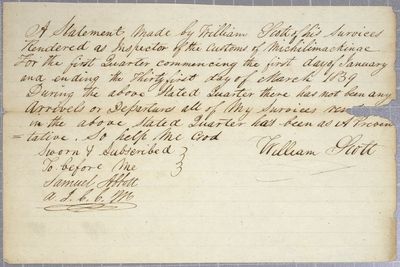 A Statement, Made by William Scott of his Survices
Rendered as Inspector of the Customs of Michilimackinac
For the first Quarter commencing the first day of January
and ending the Thirty first day of March 1839
During the above Stated Quarter there has not been any
Arrovels or Departures all of My Survices
in the above Stated Quarter has been as A Preven
=tative. So help Me God
Sworn & Subscribed }
To before Me }
William Scott
Samuel Abbott
A. J. C. C. M